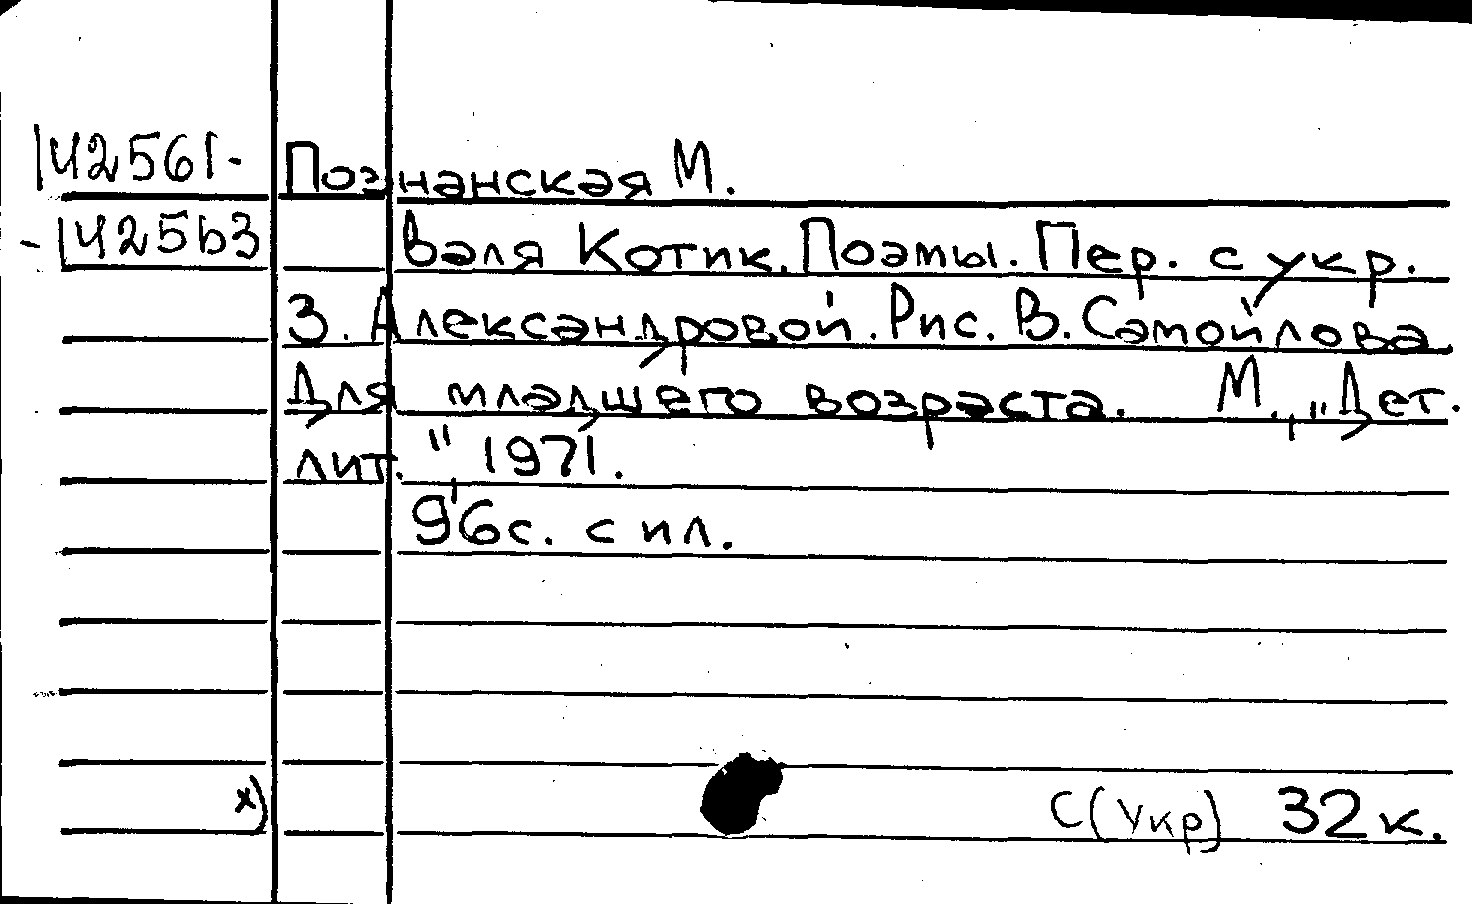 142561- Познанская М.
-142563 Валя Котик. Поэмы. Пер. с укр.
З. Александровой. Рис. В. Самойлова.
Для младшего возраста. М., "Дет.
лит." 1971.
96с. с ил.
х) С(Укр) 32 к.